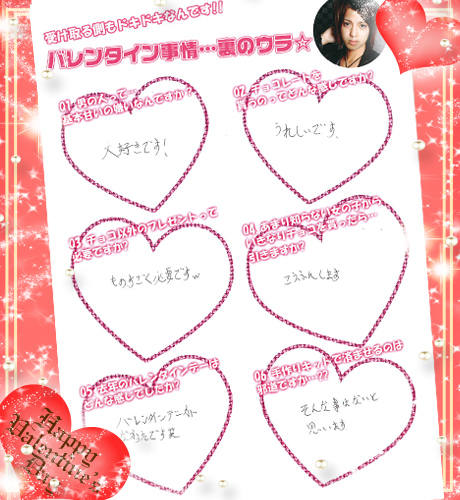 受け取る側もドキドキなんです!!
バレンタイン事情…裏のウラ☆
01 男の人って…
基本甘いの嫌いなんですか?
大好きです!
02 チョコレートを
貰うのってどんな感じですか?
うれしいです、
03 チョコ以外のプレゼントって
必要ですか?
ものすごく必要ですw
04 あまり知らない女の子から
いきなりチョコを貰ったら…
引きますか?
こうふんします
05 去年のバレンタインデーは
どんな感じでしたか?
バレンタインデーが
です笑
06 手作りキットで済ませるのは
邪道ですか…??
そんな事はないと
思います
Happy
Valentine's
Day